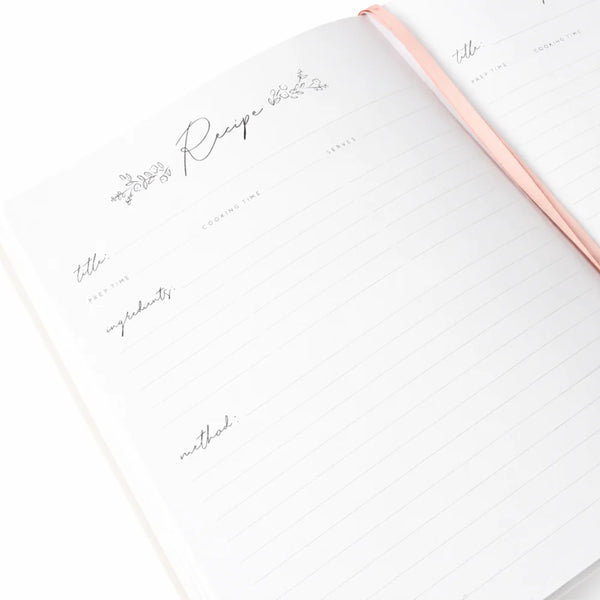 Recipe
title:
PREP TIME COOKING TIME SERVES
ingredients:
method:
title:
PREP TIME COOKING TIME